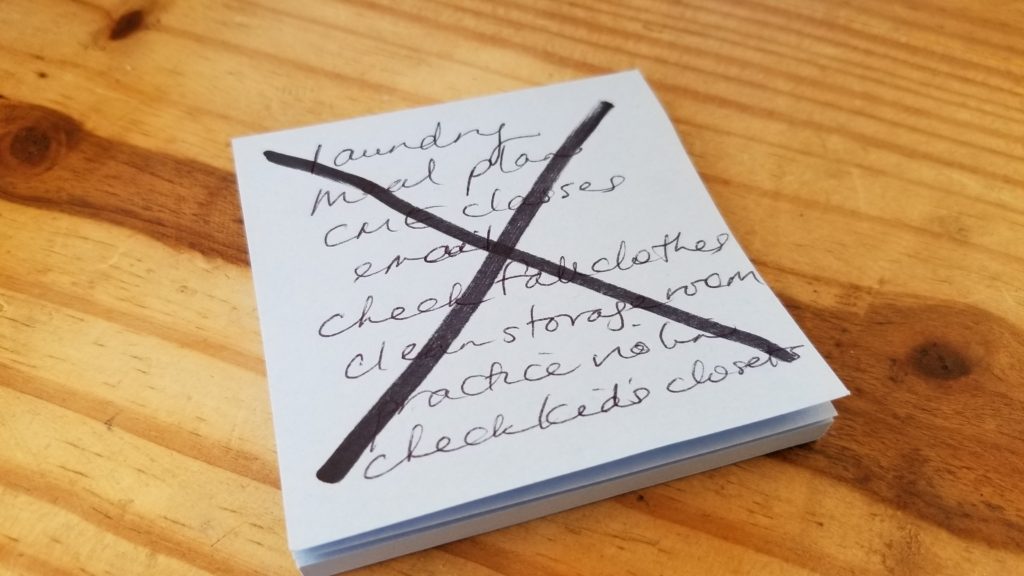 laundry
meal plans
CME classes
email
check fall clothes
clean storage room
practice violin
check kid's closet